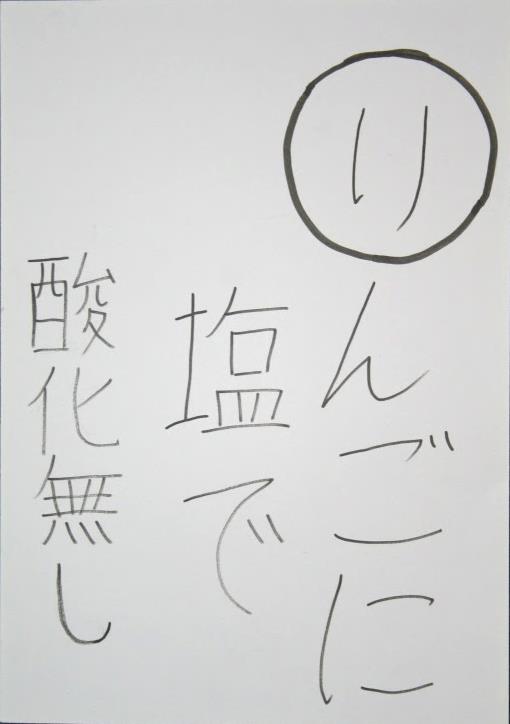 りんごに
塩で
酸化無し